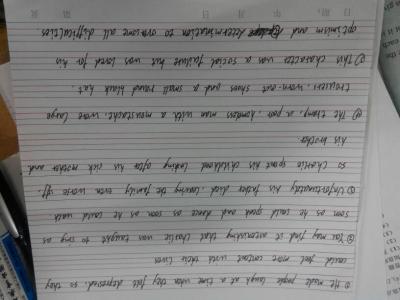 ① He made people laugh at a time when they felt depressed. so they
could feel more content with their lives
② You may find it astonishing that Charlie was taught to sing as
soon as he could speak and dance as soon as he could walk
③ Unfortunately his father died. leaving the family even worse off.
so Charlie spent his childhood looking after his sick mother and
his brother
④ The tramp, a poor, homeless man with a moustache. wore large
trousers. worn-out shoes and a small round black hat.
⑤ This character was a social failure but was loved for his
optimism and determination to overcome all difficulties